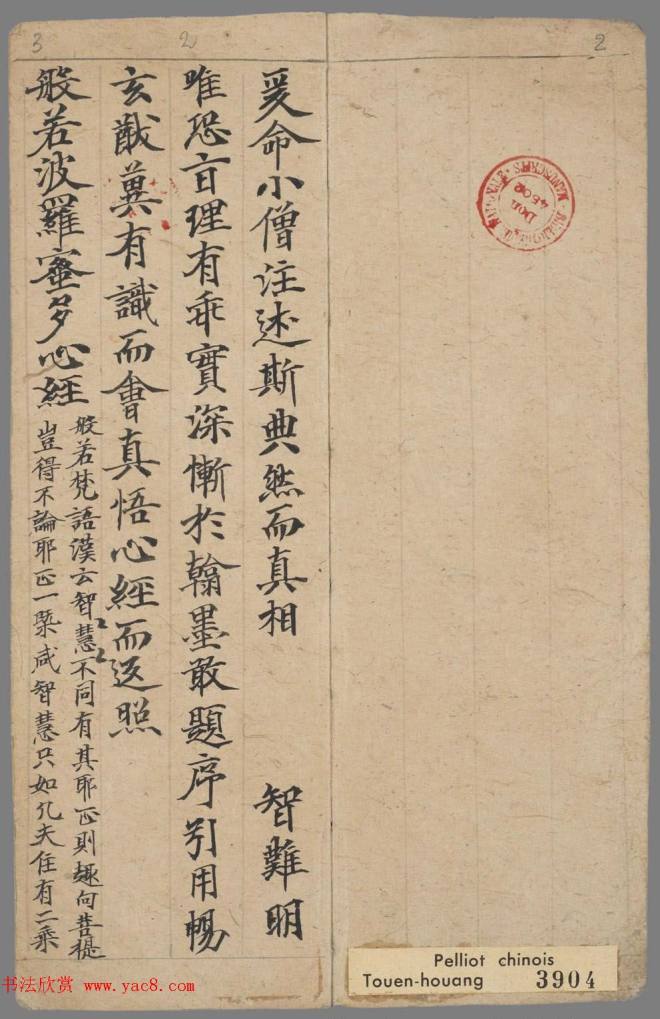 2
2
3
爰命小僧注述斯典然而真相　智難明
唯恐旨理有乖實深慚於翰墨敢題序引用暢
玄猷冀有識而會真悟心經而返照
般若波羅蜜多心經
般若梵語漢云智慧〻〻不同有其耶正則趣向菩提
豈得不論耶正一槩咸智慧只如凡夫住有二乘
MANUSCRITS
DON
4502
Pelliot chinois
Touen-houang 3904
书法欣赏 www.yac8.com